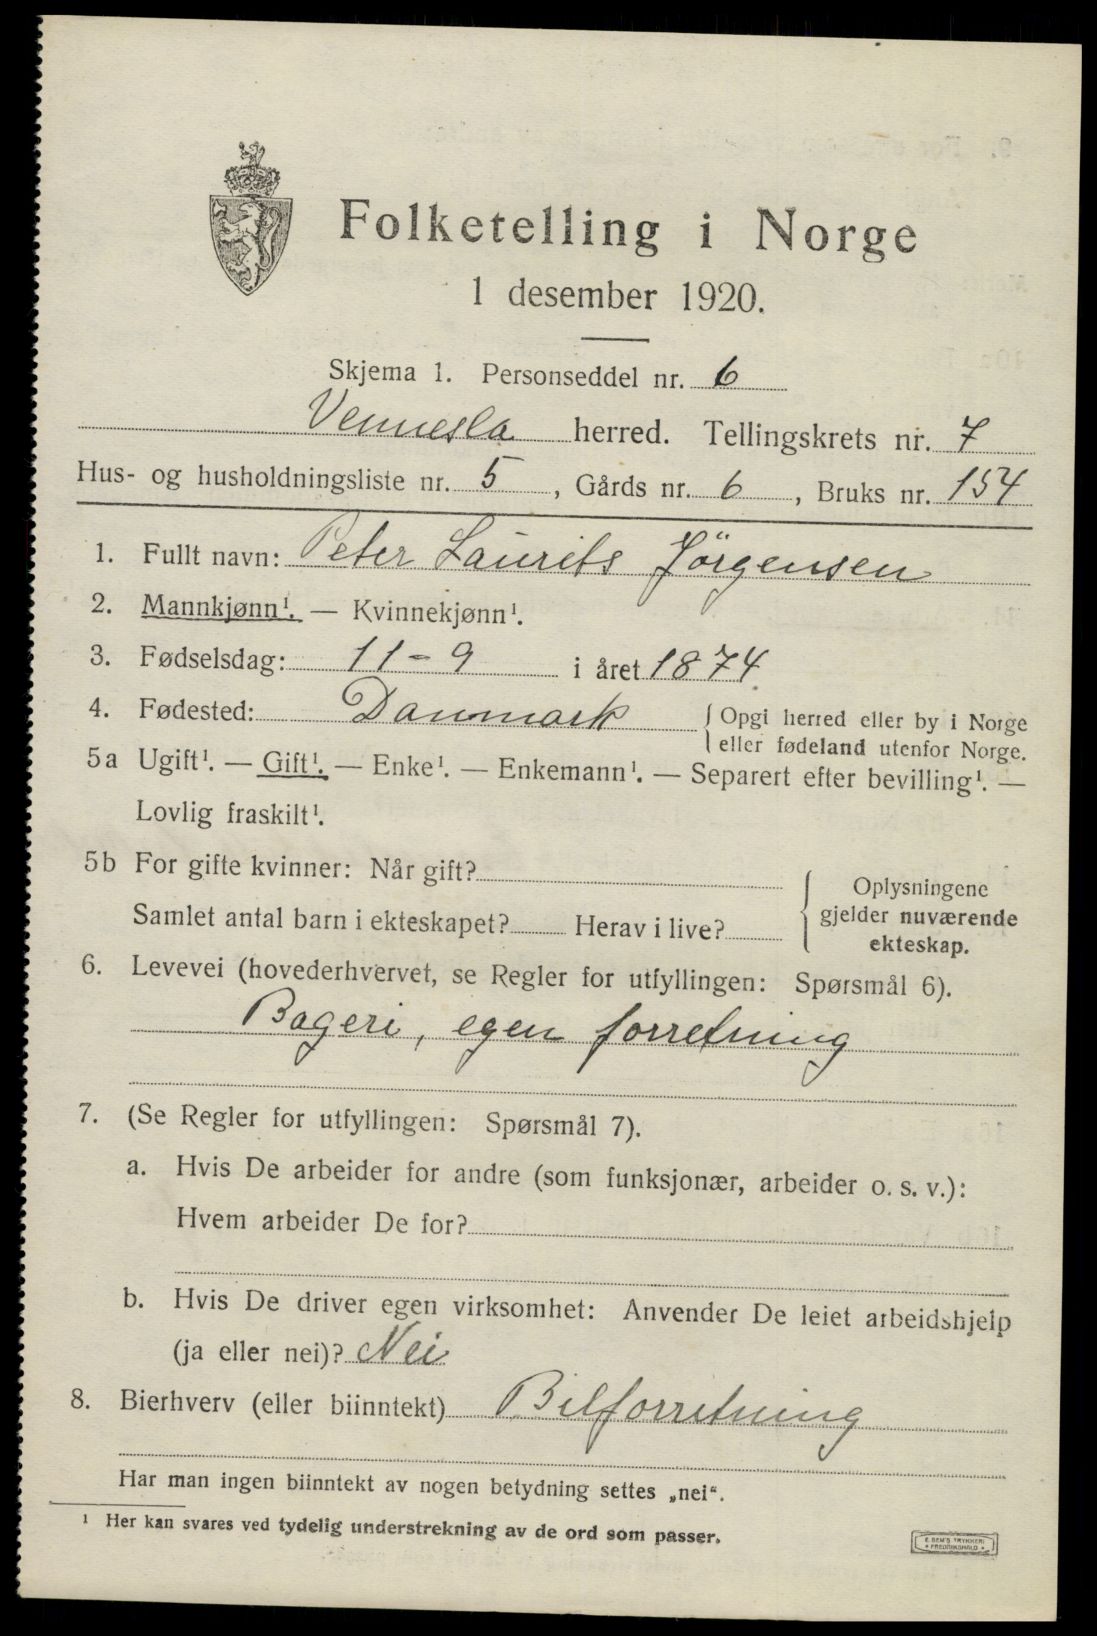 Folketelling i Norge
1 desember 1920.
Skjema 1. Personseddel nr. 6
Vennesla herred. Tellingskrets nr. 7
Hus- og husholdningsliste nr. 5, Gårds nr. 6, Bruks nr. 154
1. Fullt navn: Peter Laurits Jörgensen
2. Mannkjønn¹. — Kvinnekjønn¹.
3. Fødselsdag: 11-9 i året 1874
4. Fødested: Danmark { Opgi herred eller by i Norge
eller fødeland utenfor Norge.
5a Ugift¹. — Gift¹. — Enke¹. — Enkemann¹. — Separert efter bevilling¹. —
Lovlig fraskilt¹.
5b For gifte kvinner: Når gift?
Samlet antal barn i ekteskapet? Herav i live?
{ Oplysningene
gjelder nuværende
ekteskap.
6. Levevei (hovederhvervet, se Regler for utfyllingen: Spørsmål 6).
Bageri, egen forretning
7. (Se Regler for utfyllingen: Spørsmål 7).
a. Hvis De arbeider for andre (som funksjonær, arbeider o. s. v.):
Hvem arbeider De for?
b. Hvis De driver egen virksomhet: Anvender De leiet arbeidshjelp
(ja eller nei)? Nei
8. Bierhverv (eller biinntekt) Bilforretning
Har man ingen biinntekt av nogen betydning settes „nei“.
¹ Her kan svares ved tydelig understrekning av de ord som passer.
E. SEM'S TRYKKERI
FREDRIKSHALD